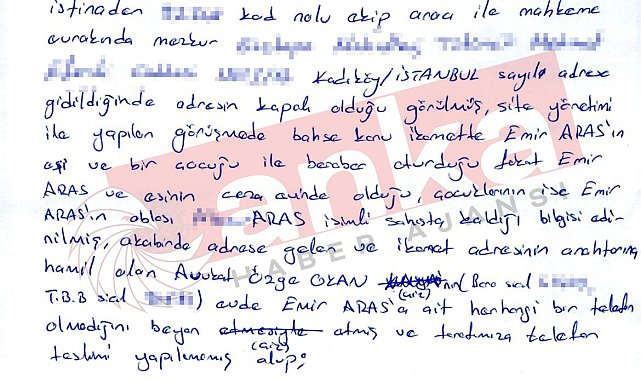 istinaden kod nolu ekip aracı ile mahkeme
evrakında mezkur
Kadıköy/İSTANBUL sayılı adrese
gidildiğinde adresin kapalı olduğu görülmüş, site yönetimi
ile yapılan görüşmede bahse konu ikamette Emir ARAS'ın
eşi ve bir çocuğu ile beraber oturduğu fakat Emir
ARAS ve eşinin ceza evinde olduğu, çocuklarının ise Emir
ARAS'ın ablası ARAS isimli şahısta kaldığı bilgisi edi-
nilmiş, akabinde adrese gelen ve ikamet adresinin anahtarına
hamil olan Avukat Özge OKAN nin (Baro sicil
T.B.B sicil ) (çiz) evde Emir ARAS'a ait herhangi bir telefon
olmadığını beyan etmesiyle etmiş ve tarafımıza telefon
(çiz)
teslimi yapılamamış olup;
anka
HABER AJANSI